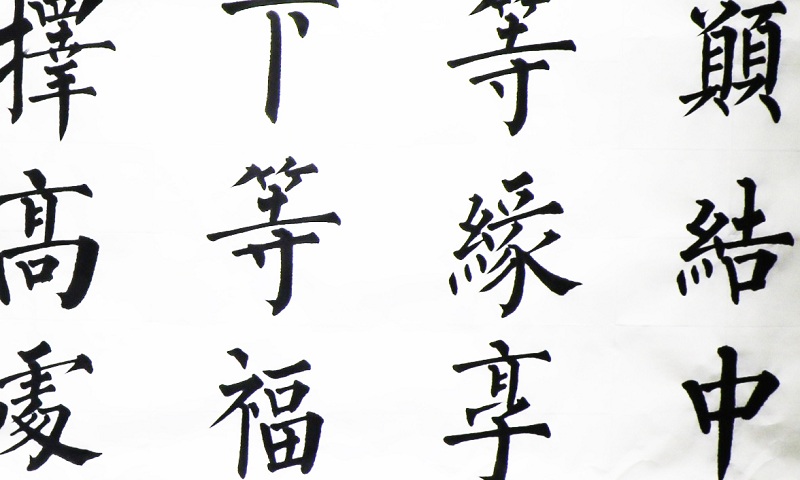 願結中
等緣享
下等福
擇髙處